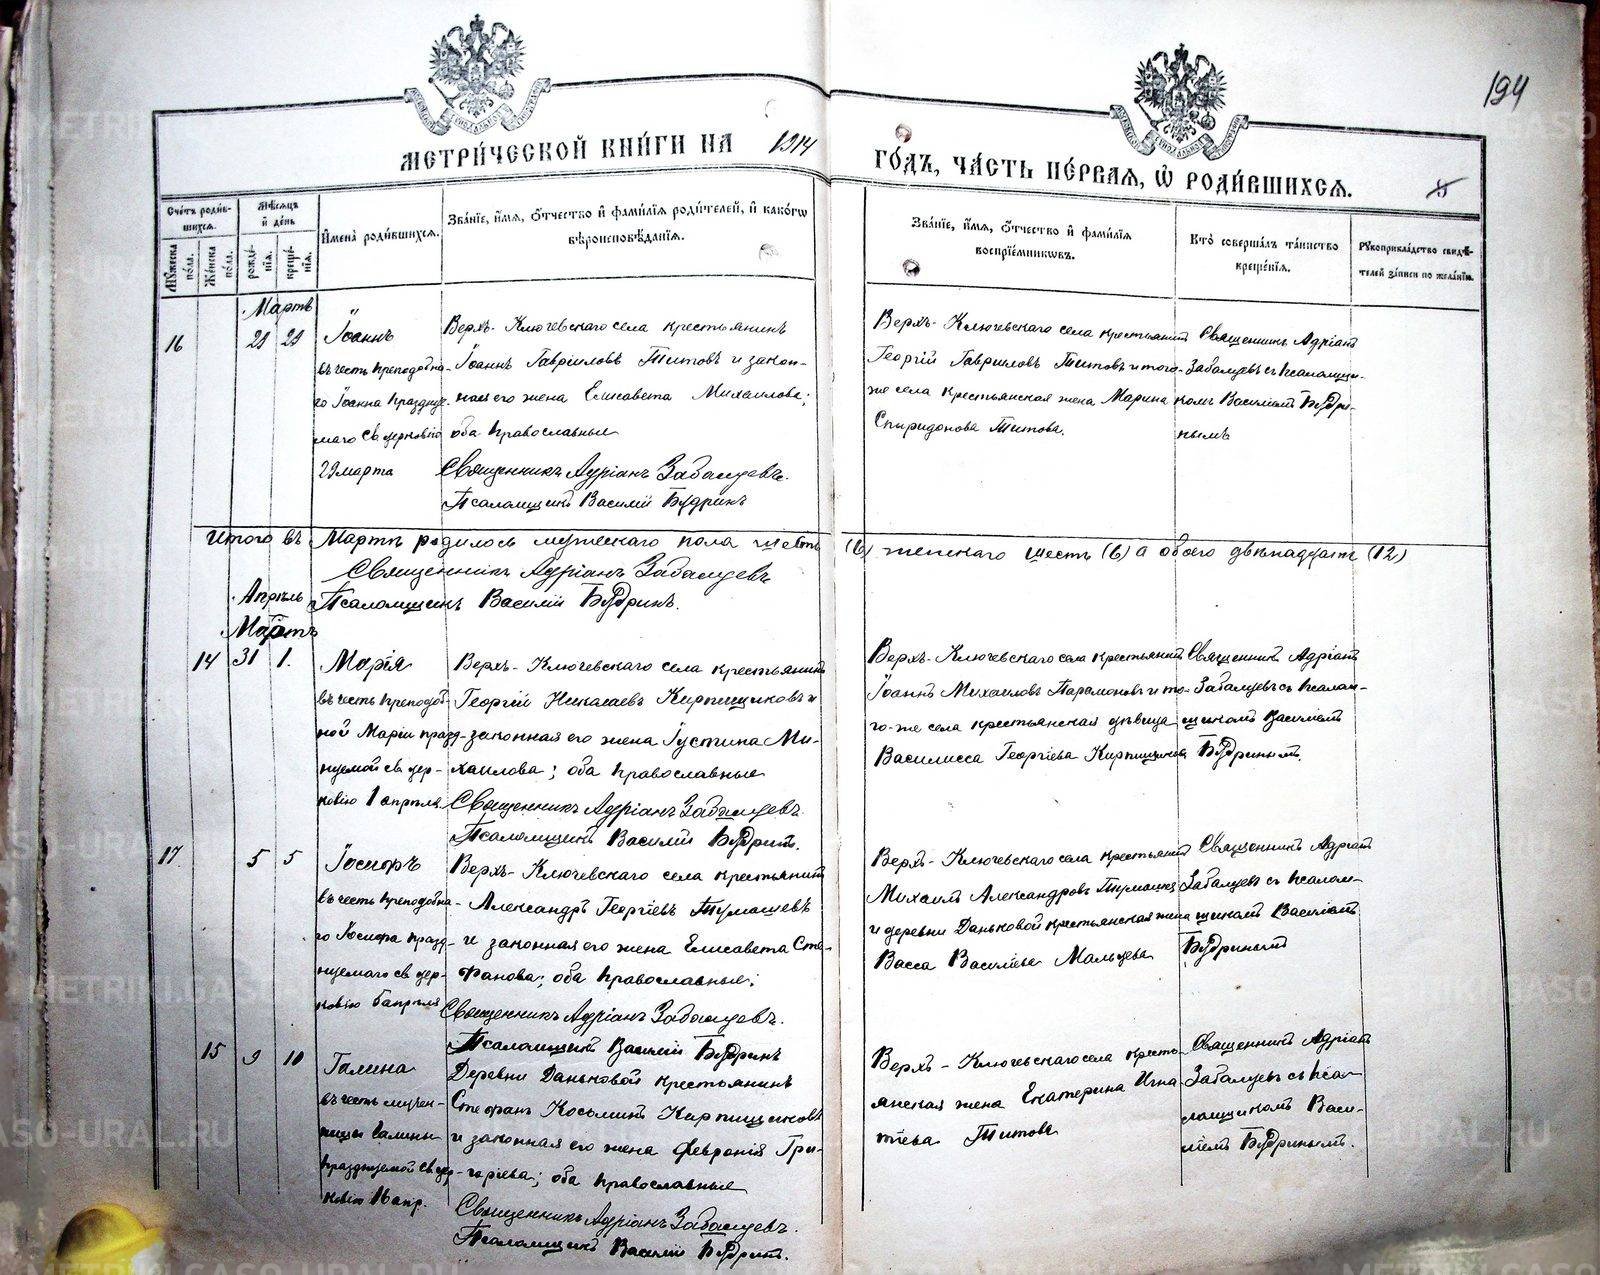 194
МЕТРИ́ЧЕСКОЙ КНИ́ГИ НА 1914
ГО́ДЪ, ЧА́СТЬ ПЕ́РВАЯ, Ѡ РОДИ́ВШИХСЯ.
Сче́тъ роди́в-
шихся.
Му́жеска
по́ла.
Же́нска
по́ла.
Мѣ́сяцъ
и де́нь
рожде́-
нія.
креще́-
нія.
И́мена роди́вшихся.
Зва́ніе, и́мя, о́тчество и фами́лія роди́телей, и како́гѡ
вѣроисповѣ́данія.
Зва́ніе, и́мя, о́тчество и фами́лія
воспріе́мникѡвъ.
Кто̀ соверша́лъ та́инство
креще́нія.
Рукоприкла́дство свидѣ́-
телей за́писи по жела́нію.
Мартъ
16
29 29
Іоаннъ
въ честь преподобна-
го Іоанна празднуе-
маго св. церковію
29 марта
Верхъ-Ключевскаго села крестьянинъ
Іоаннъ Гавріиловъ Титовъ и закон-
ная его жена Елисавета Михаилова;
оба православные
Священникъ Адріанъ Забалуевъ.
Псаломщикъ Василій Будринъ
Верхъ-Ключевскаго села крестьянинъ
Георгій Гавріиловъ Титовъ и того-
же села крестьянская жена Марина
Спиридонова Титова.
Священникъ Адріанъ
Забалуевъ съ псаломщи-
комъ Василіемъ Будри-
нымъ
Итого въ Мартѣ родилось мужескаго пола шесть (6) женскаго шесть (6) а обоего двѣнадцать (12)
Священникъ Адріанъ Забалуевъ
Псаломщикъ Василій Будринъ.
Апрѣль
Мартъ
14 31 1.
Марія
въ честь преподоб-
ной Маріи празд-
нуемой св. цер-
ковію 1 апрѣля
Верхъ-Ключевскаго села крестьянинъ
Георгій Николаевъ Кирпищиковъ и
законная его жена Іустина Ми-
хаилова; оба православные
Священникъ Адріанъ Забалуевъ.
Псаломщикъ Василій Будринъ.
Верхъ-Ключевскаго села крестьянинъ
Іоаннъ Михаиловъ Парамоновъ и то-
го-же села крестьянская дѣвица
Василисса Георгіева Кирпищикова
Священникъ Адріанъ
Забалуевъ съ псалом-
щикомъ Василіемъ
Будринымъ.
17
5 5
Іосифъ
въ честь преподобна-
го Іосифа празд-
нуемаго св. цер-
ковію 6 апрѣля
Верхъ-Ключевскаго села крестьянинъ
Александръ Георгіевъ Тумашевъ
и законная его жена Елисавета Сте-
фанова; оба православные;
Священникъ Адріанъ Забалуевъ.
Псаломщикъ Василій Будринъ
Верхъ-Ключевскаго села крестьянинъ
Михаилъ Александровъ Тумашевъ
и деревни Даньковой крестьянская жена
Васса Василіева Мальцева
Священникъ Адріанъ
Забалуевъ съ псалом-
щикомъ Василіемъ
Будринымъ
15
9 10
Галина
въ честь мучен-
ницы Галины
празднуемой св. цер-
ковію 16 апр.
Деревни Даньковой крестьянинъ
Стефанъ Косьминъ Кирпищиковъ
и законная его жена Февронія Гри-
горіева; оба православные
Священникъ Адріанъ Забалуевъ.
Псаломщикъ Василій Будринъ.
Верхъ-Ключевскаго села кресть-
янская жена Екатерина Игна-
тіева Титова
Священникъ Адріанъ
Забалуевъ съ пса-
ломщикомъ Васи-
ліемъ Будринымъ.